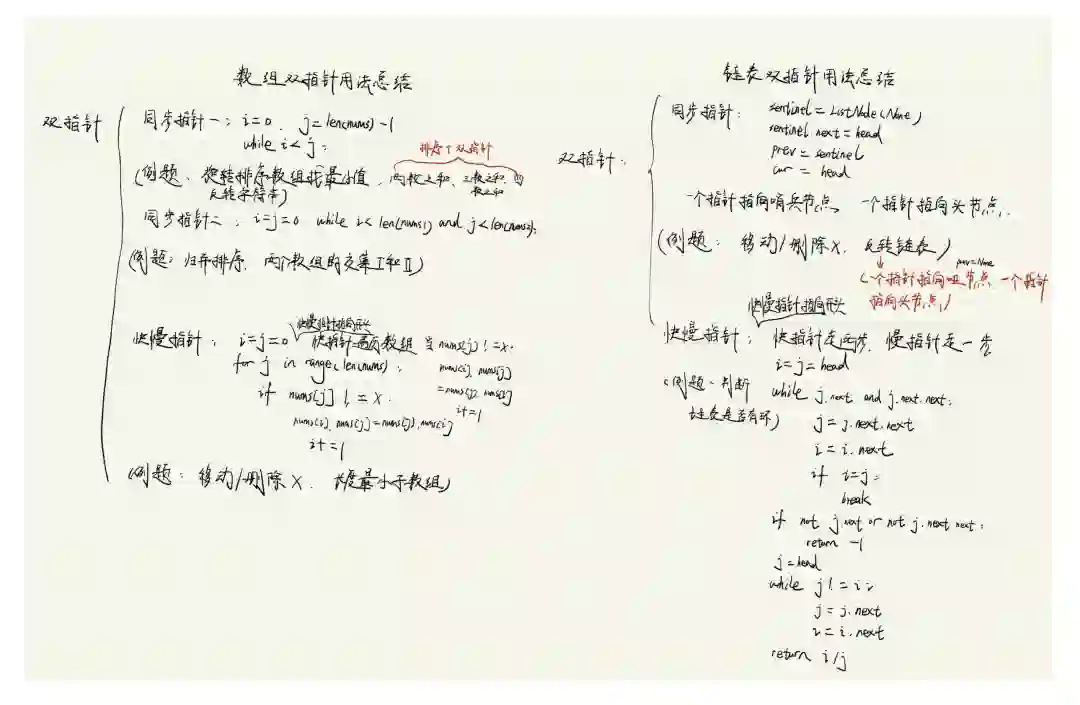 数组双指针用法总结
双指针
同步指针一：i=0, j=len(nums)-1
while i<j:
排序+双指针
(例题、旋转排序数组找最小值、两数之和、三数之和、四数之和
反转字符串)
同步指针二、i=j=0 while i<len(nums1) and j<len(nums2):
(例题：归并排序、两个数组的交集I和II)
快慢指针指向开头
快慢指针：i=j=0 快指针遍历数组 当nums[j]!=x.
for j in range(len(nums)): nums[i], nums[j]
=nums[j], nums[i]
if nums[j]!=x. i+=1
nums[i], nums[j]=nums[j], nums[i]
i+=1
(例题：移动/删除X、长度最小子数组)
链表双指针用法总结
双指针：
同步指针：sentinel=ListNode(None)
sentinel.next=head
prev=sentinel
cur=head
一个指针指向哨兵节点、一个指针指向头节点.
(例题：移动/删除X、反转链表)
prev=None
(一个指针指向 节点、一个指针
指向头节点)
快慢指针指向开头
快慢指针：快指针走两步、慢指针走一步
i=j=head
(例题、判断
链表是否有环)
while j.next and j.next.next:
j=j.next.next
i=i.next
if i=j:
break
if not j.next or not j.next.next:
return -1
j=head
while j!=i:
j=j.next
i=i.next
return i/j